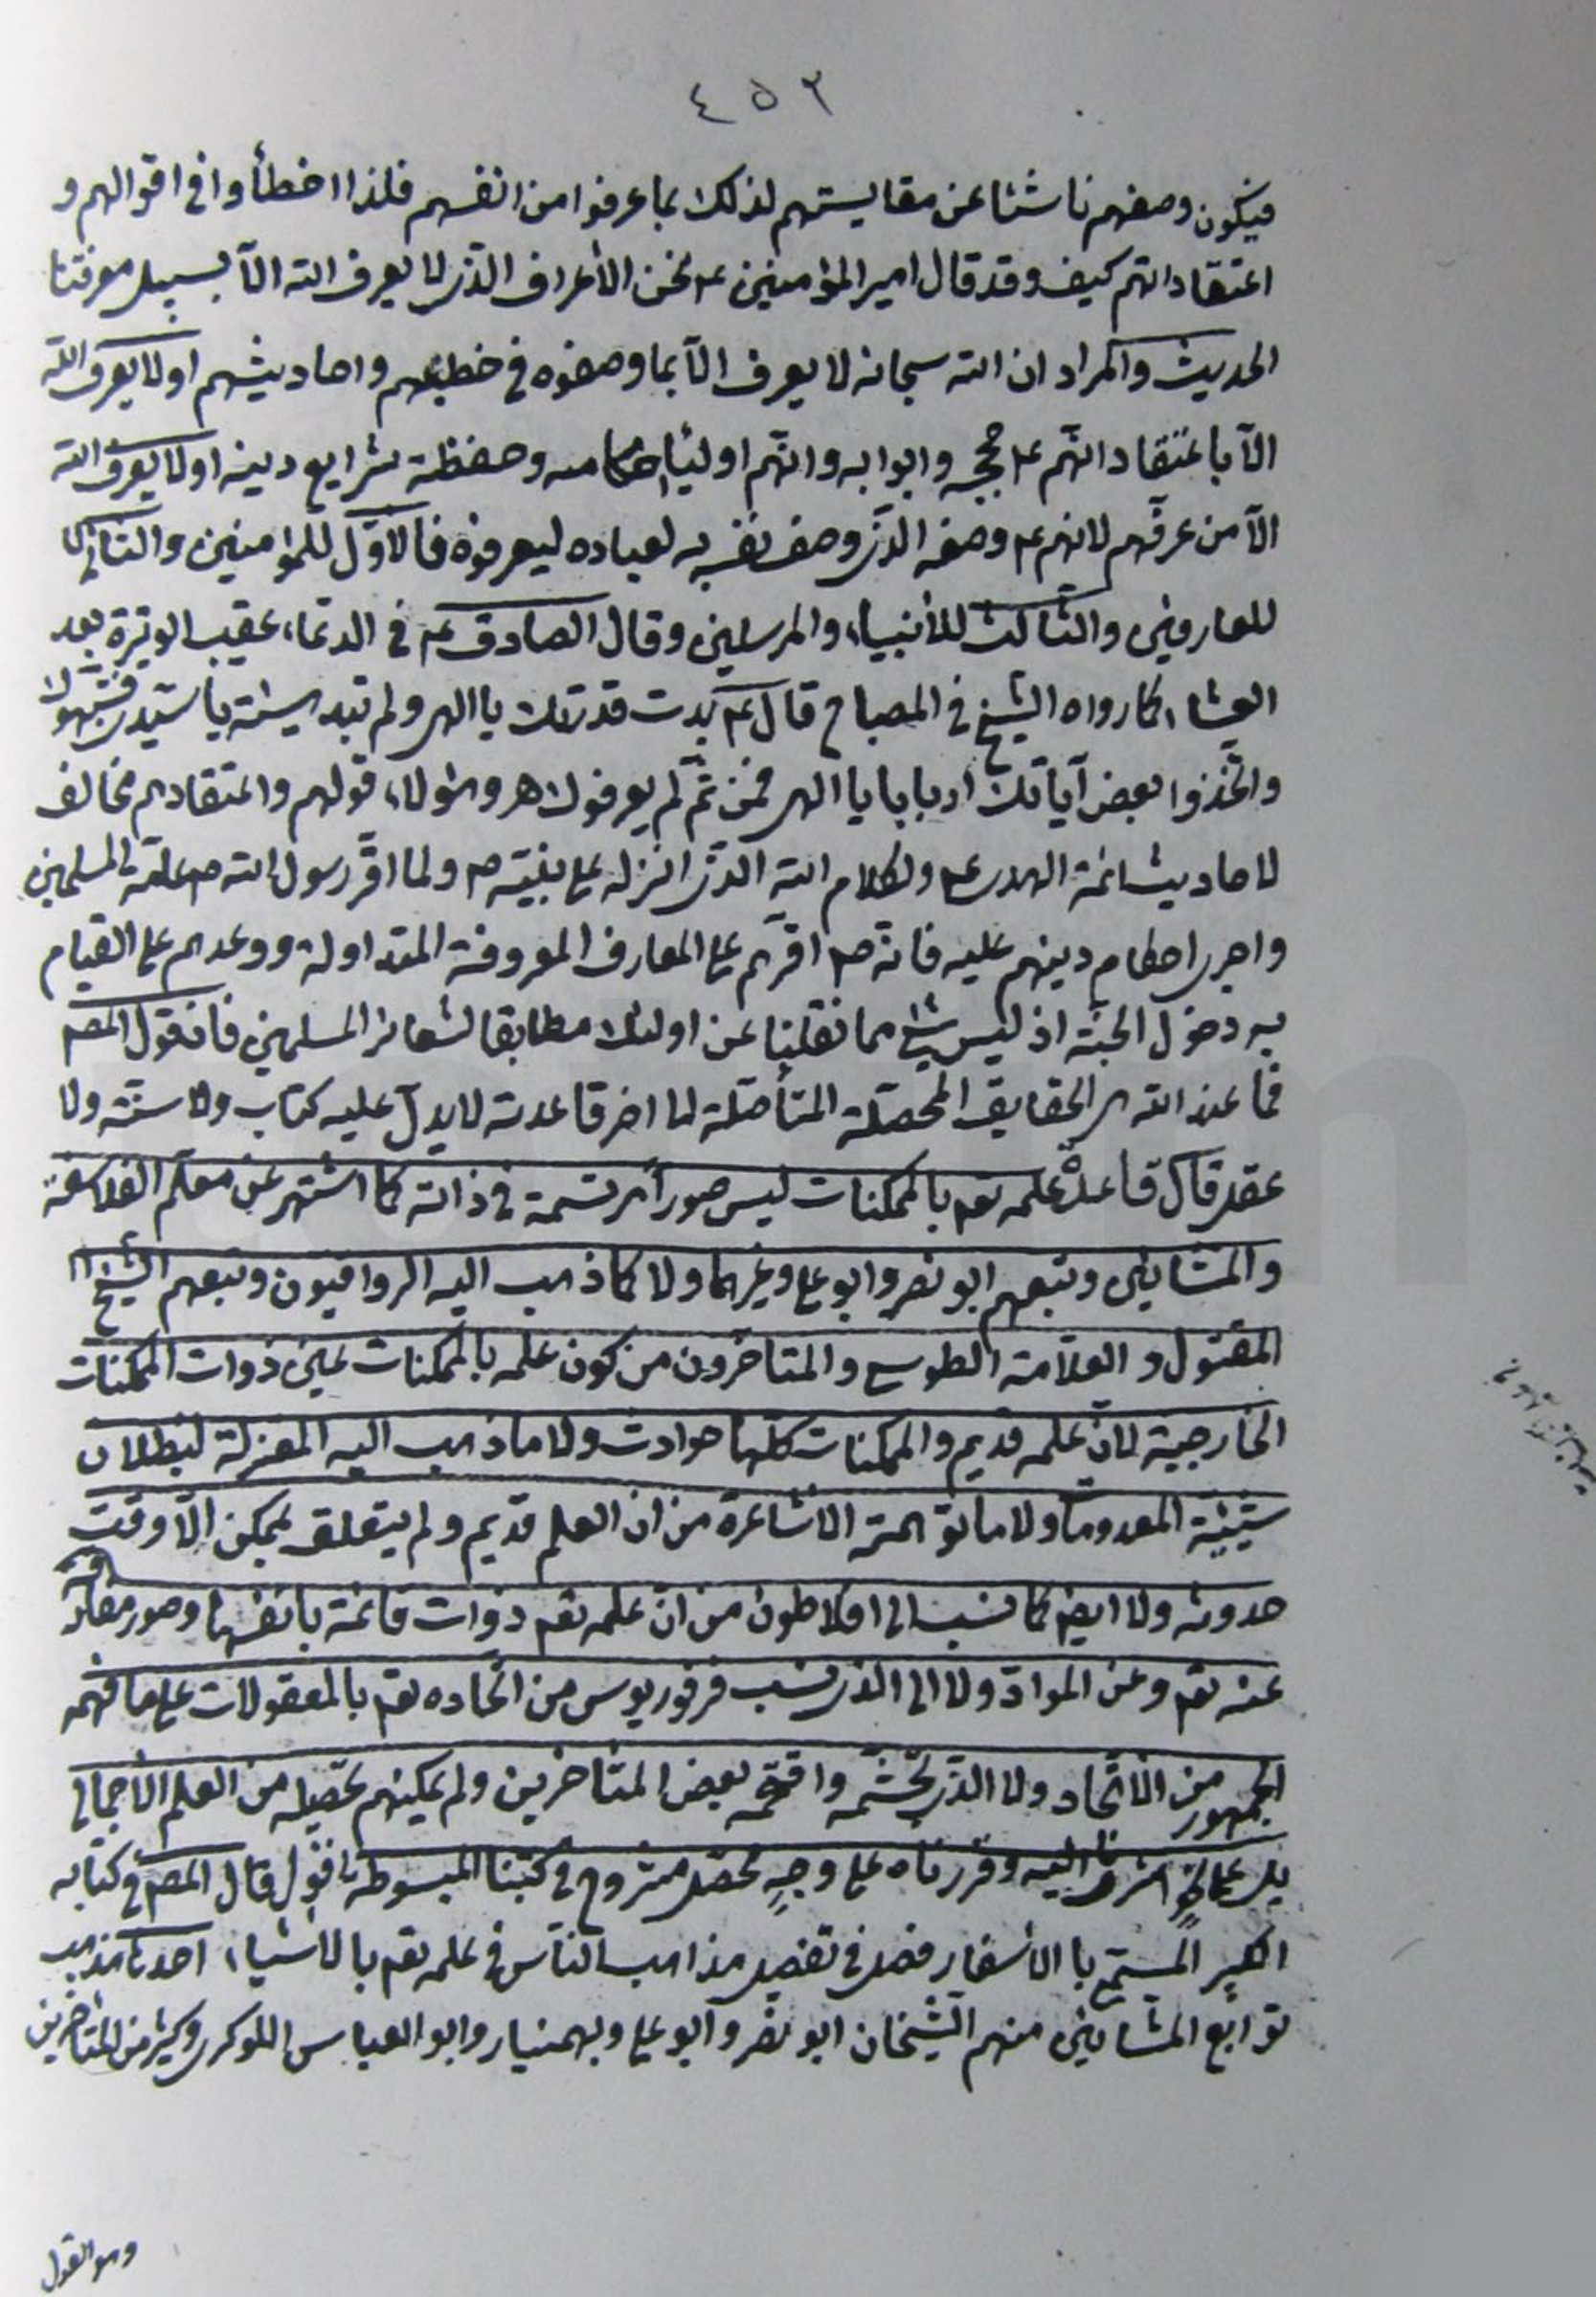 ٤٥٣
فيكون وصفهم ناشئا عن مقايستهم لذلك بما عرفوا من انفسهم فلذا اخطأوا في اقوالهم و
اعتقاداتهم كيف وقد قال امير المؤمنين ع نحن الأعراف الذى لا يعرف الله الآ بسبيل معرفتنا
الحديث والمراد ان الله سبحانه لا يعرف الآ بما وصفوه في خطبهم واحاديثهم او لا يعرف الله
الآ باعتقاد انهم ع حججه وابوابه وانهم اولياء احكامه وحفظة شرايع دينه او لا يعرف الله
الآ من عرفهم لانهم ع وصفه الذى وصف نفسه به لعباده ليعرفوه فالاول للمؤمنين والثانى
للعارفين والثالث للأنبياء والمرسلين وقال الصادق ع في الدعاء عقيب الوتيرة بعد
العشاء كما رواه الشيخ في المصباح قال ع بدت قدرتك يا الهى ولم تبد هيئة يا سيدى فشبهوك
واتخذوا بعض آياتك اربابا يا الهى فمن ثم لم يعرفوك هـ وهؤلاء قولهم واعتقادهم مخالف
لاحاديث ائمة الهدى ع ولكلام الله الذى انزله على نبيه ص ولما اقر رسول الله ص عليه المسلمين
واجرى احكام دينهم عليه فانه ص اقرهم على المعارف المعروفة المتداولة ووعدهم على القيام
به دخول الجنة اذ ليس شئ مما نقلنا عن اولئك مطابقا لشعائر المسلمين فان قول المصـ
فما عند الله هى الحقايق المحصلة المتأصلة لما اخر قاعدته لا يدل عليه كتاب ولا سنة ولا
عقل قال قاعدة علمه تعـ بالممكنات ليس صوراً مرتسمة في ذاته كما اشتهر عن معلم الفلاسفة
والمشايين وتبعهم ابو نصر وابو على وغيرهما ولا كما ذهب اليه الرواقيون وتبعهم الشيخ
المقتول و العلامة الطوسى والمتاخرون من كون علمه بالممكنات عين ذوات الممكنات
الخارجية لان علمه قديم والممكنات كلها حوادث ولا ما ذهب اليه المعتزلة لبطلان
شيئية المعدومات ولا ما توهمته الاشاعرة من ان العلم قديم ولم يتعلق بممكن الآ وقت
حدوثه ولا ايضا كما نسب الى افلاطون من ان علمه تعـ ذوات قائمة بانفسها وصور مفارقة
عنه تعـ وعن المواد ولا الى الذى نسب فرفوريوس من اتحاده تعـ بالمعقولات على ما فهمه
الجمهور من الاتحاد ولا الذى تجشمه واقتحمه بعض المتاخرين ولم يمكنهم تحصيله من العلم الاجمالى
بل على نحو اشرنا اليه وقررناه على وجهٍ محصل مشروح في كتبنا المبسوطة اقول قال المصـ في كتابه
الكبير المسمى بالأسفار فصل في تفصيل مذاهب الناس في علمه تعـ بالاشياء احدها مذهب
توابع المشايين منهم الشيخان ابو نصر وابو على وبهمنيار وابو العباس اللوكرى وكثير من المتاخرين
وهو القول